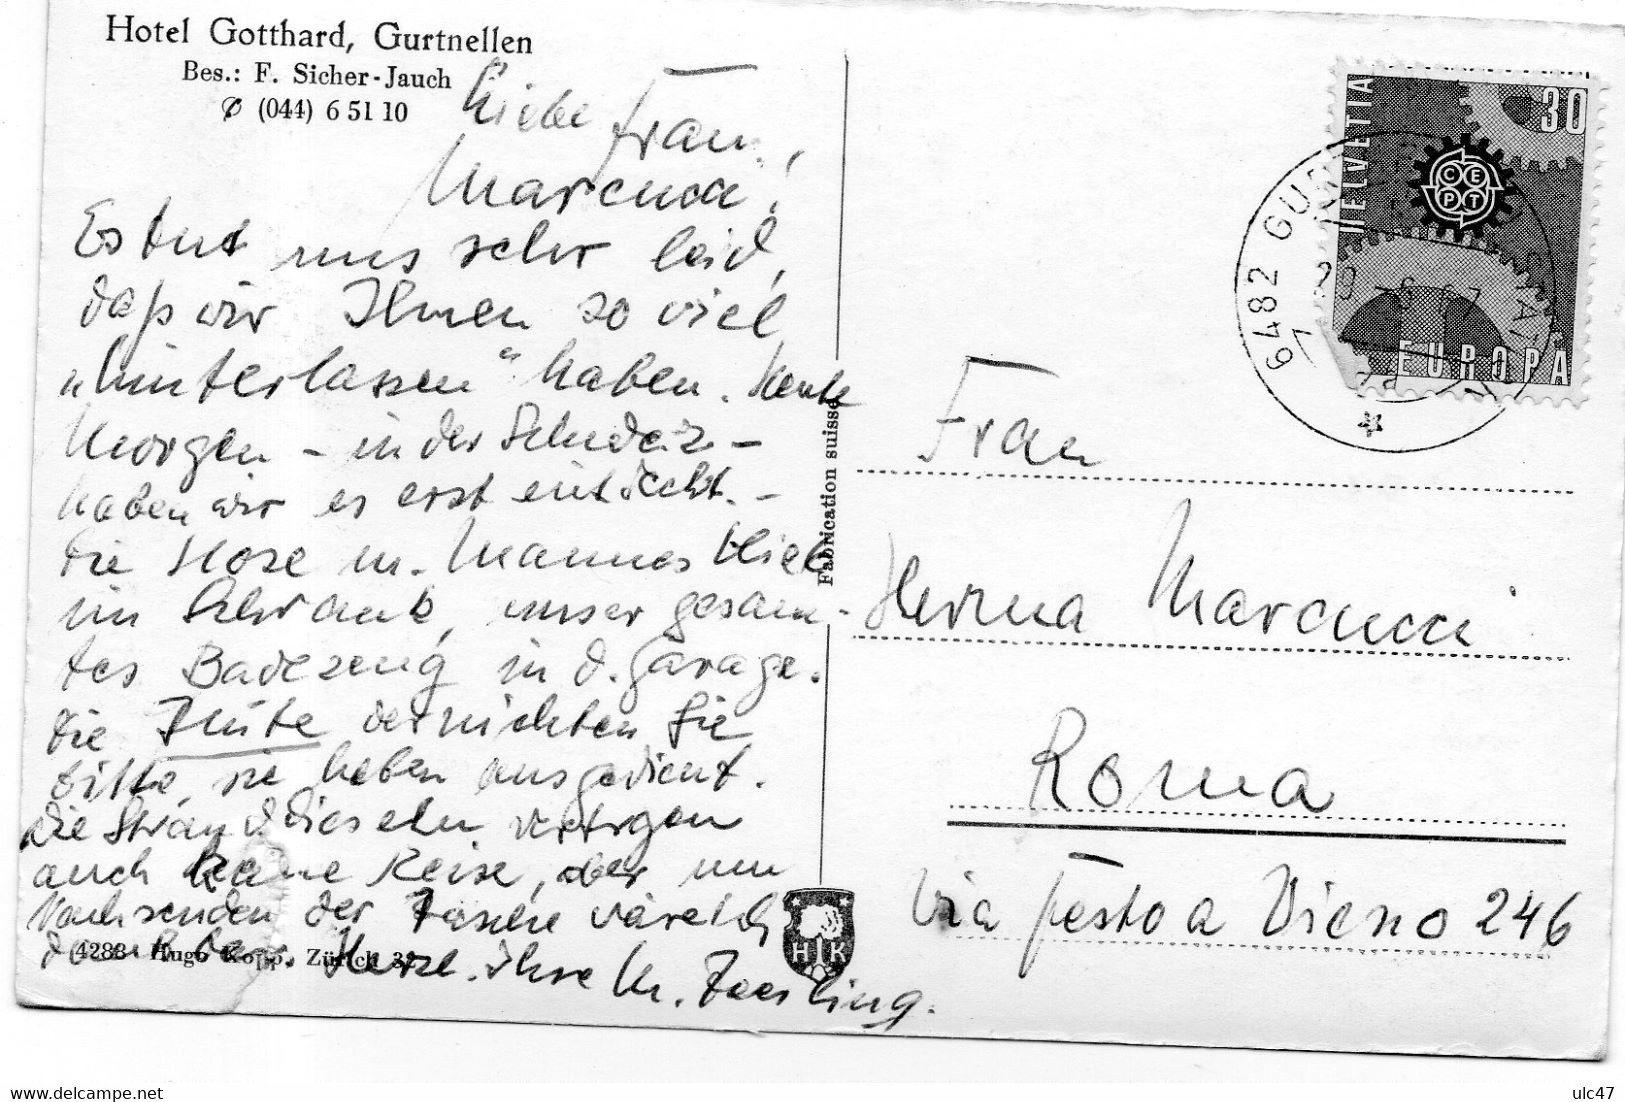 Hotel Gotthard, Gurtnellen
Bes.: F. Sicher-Jauch
✆ (044) 6 51 10
Liebe Frau
Marcucci!
Es tut uns sehr leid,
daß wir Ihnen so viel
„hinterlassen“ haben. Heute
Morgen – in der Schweiz –
haben wir es erst entdeckt. –
Die Hose m. Mannes blieb
im Schrank, unser gesam-
tes Badezeug in d. Garage.
Die Hüte vernichten Sie
bitte, sie haben ausgedient.
Die Strand
auch keine Reise, aber um
Nachsenden der Tasche wäre ich
dankbar. Herzl. Ihre
4283 Hugo Kopp, Zürich 32
Fabrication suisse
HK
HELVETIA
30
CEPT
EUROPA
6482 GURTNELLEN
Frau
Herma Marcucci
Roma
Via Festo Avieno 246
ulc47